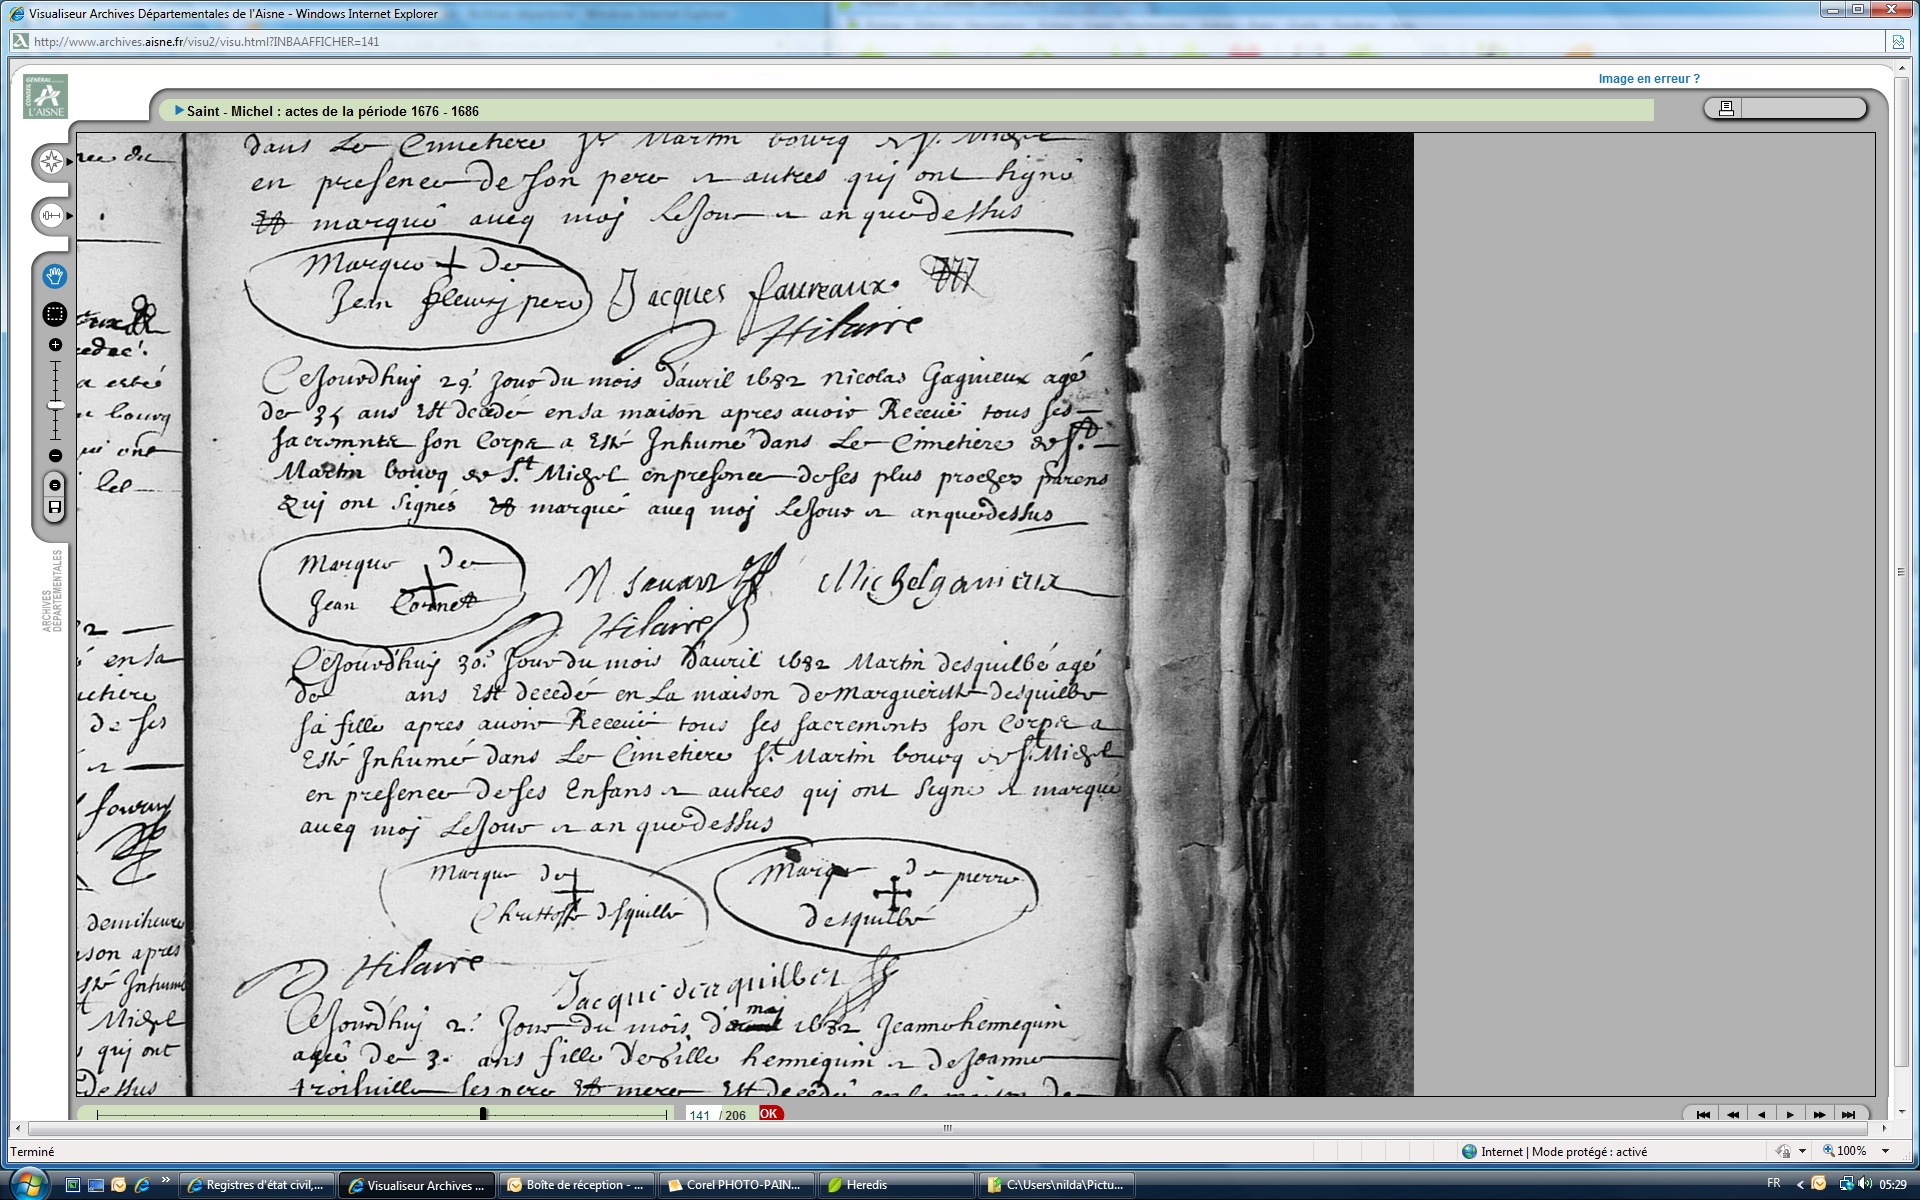 Visualiseur Archives Départementales de l'Aisne - Windows Internet Explorer
http://www.archives.aisne.fr/visu2/visu.html?INBAAFFICHER=141
Image en erreur ?
CONSEIL GÉNÉRAL L'AISNE
Saint - Michel : actes de la période 1676 - 1686
dans Le Cimetiere St Martin bourq de St. Michel
en presence de son pere et autres qui ont signé
Et marqué aveq moj Le Jour et an que dessus
Marque de
Jean fleurij pere
Jacques faureaux
Hilaire
Cejourdhuij 29e. Jour du mois d'auril 1682 Nicolas Gagnieux agé
de 35 ans Est decedé en sa maison apres avoir Receuë tous ses
sacremnts son Corps a Esté Inhumé dans Le Cimetiere de St.
Martin bourq de St Michel en presence de ses plus proches parens
Qui ont signés Et marqué aveq moj Le Jour et an que dessus
Marque de
Jean Cornet
Michel ganieux
Hilaire
Cejourdhuij 30e. Jour du mois d'auril 1682 Martin desquilbé agé
de ans Est decedé en La maison de Margueritte desquilbe
sa fille apres avoir Receuë tous ses sacrements son Corps a
Esté Inhumé dans Le Cimetiere St Martin bourq de St Michel
en presence de ses Enfans et autres qui ont signé et marqué
aveq moj Le Jour et an que dessus
Marque de
Christoffe desquilbé
Marque de pierre
desquilbé
Hilaire
Cejourdhuij 2e. Jour du mois de maj 1682 Jeanne hennequin
ageé de 30 ans fille de Gille hennequin et de Jeanne
les pere Et mere Est decedé en la maison de
ree du
a esté
u bourq
qui ont
lel
en sa
metiere
de ses
et
fourny
demiheure
son apres
sté Inhumé
Michel
qui ont
dessus
ARCHIVES
DÉPARTEMENTALES
141 / 206 OK
Terminé
Internet | Mode protégé : activé
100%
Registres d'état civil,...
Visualiseur Archives ...
Boîte de réception - ...
Corel PHOTO-PAIN...
Heredis
C:\Users\nilda\Pictu...
FR
05:29